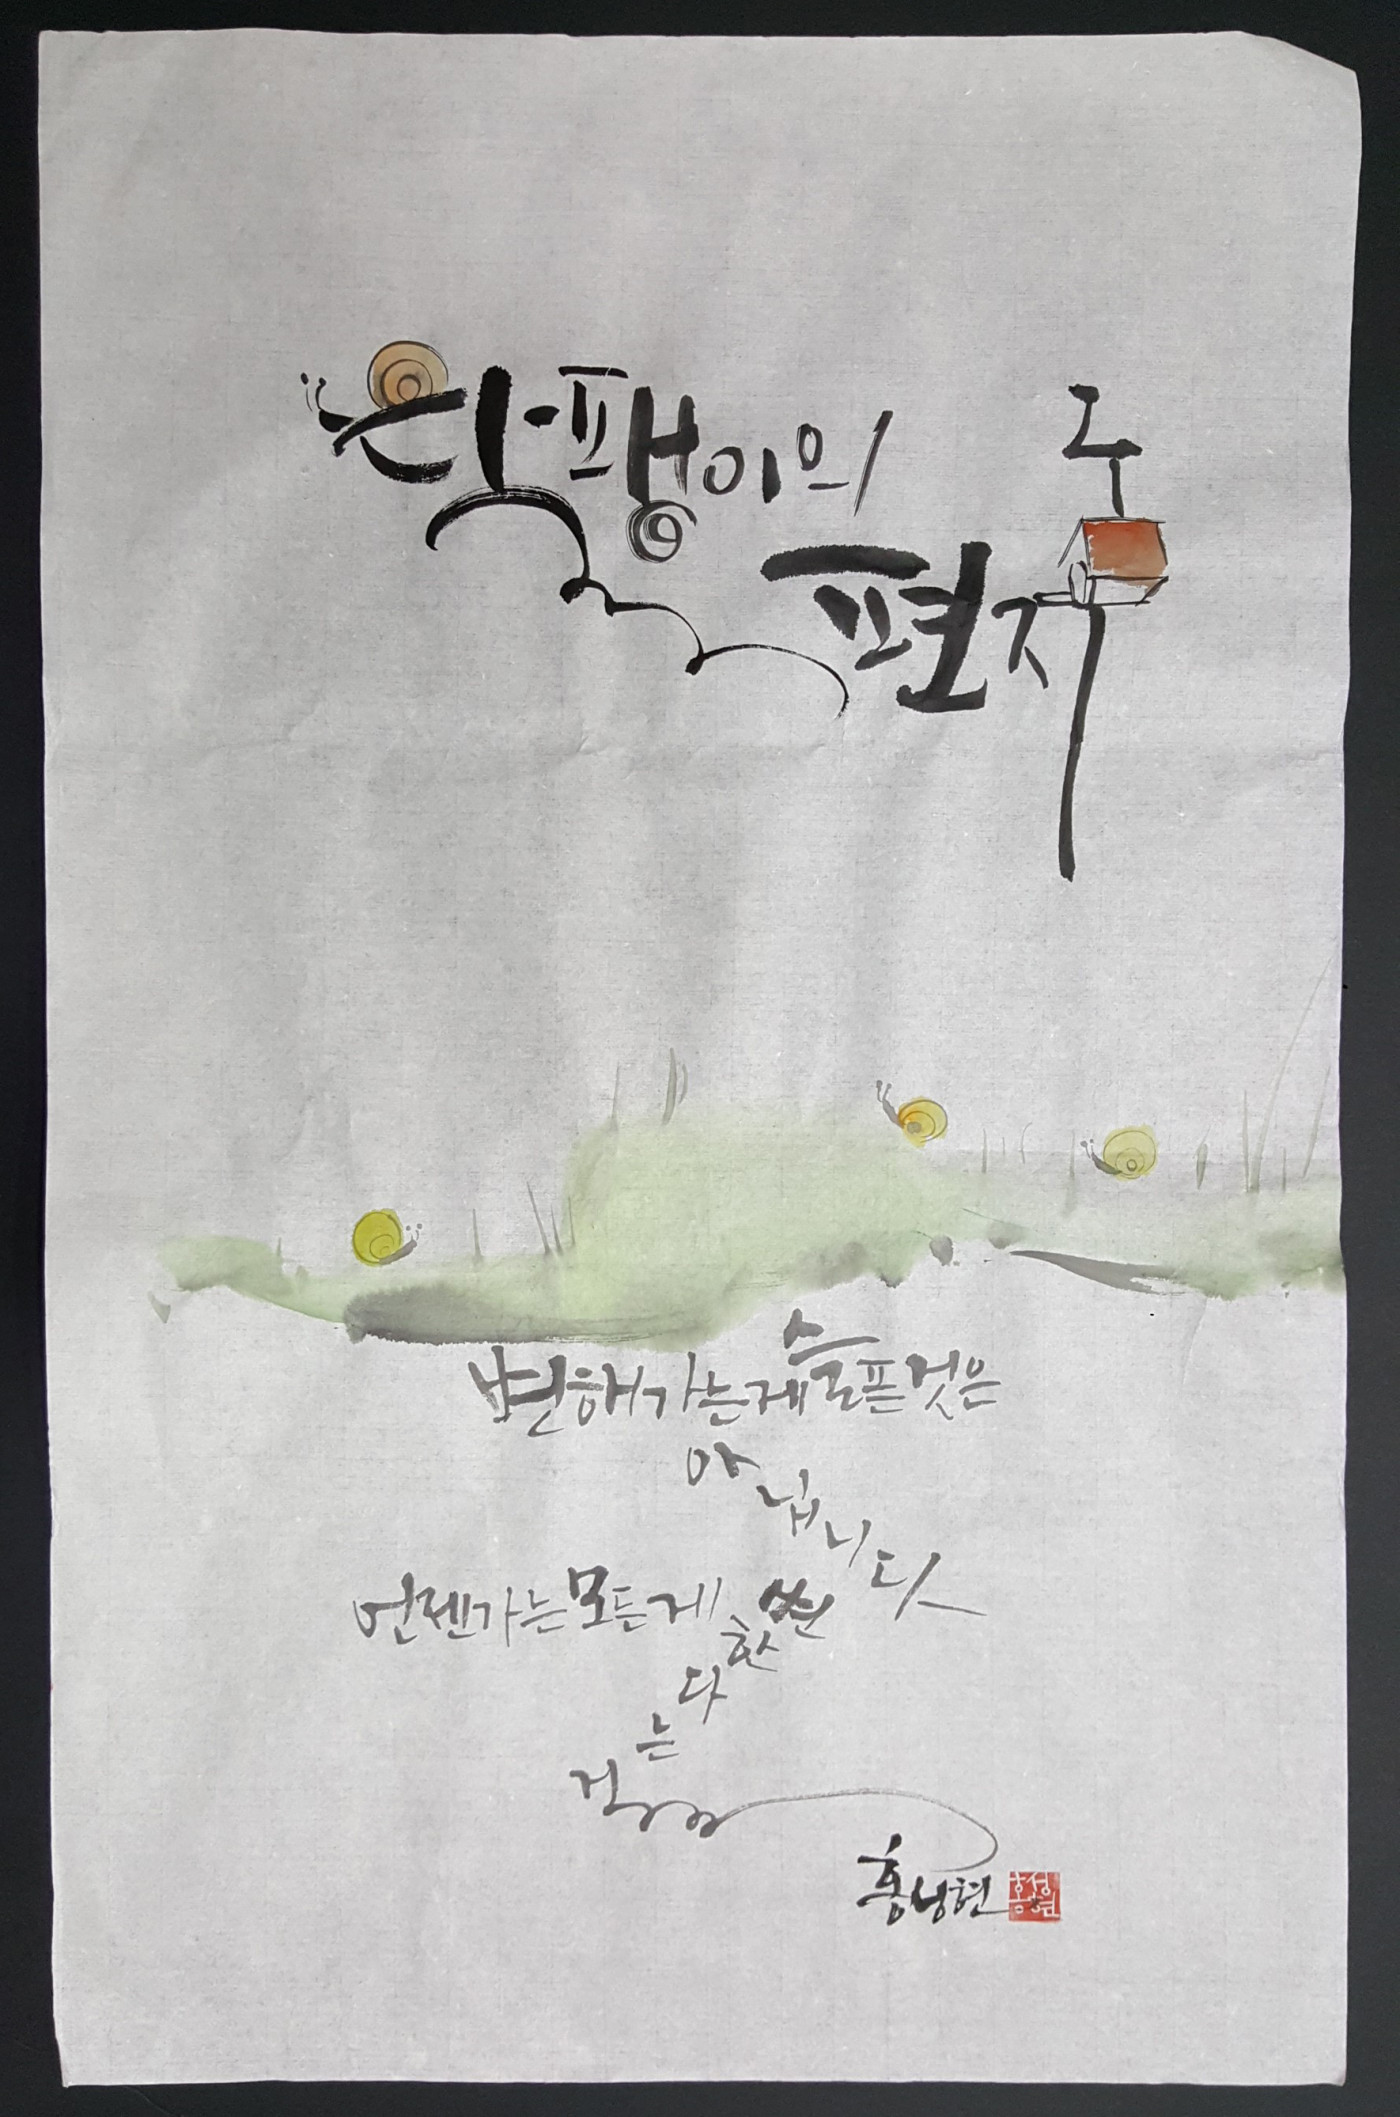 달팽이의
편지
변해가는게 슬픈것은
아닙니다
언젠가는 모든게 변한다는걸
홍성현
홍성현